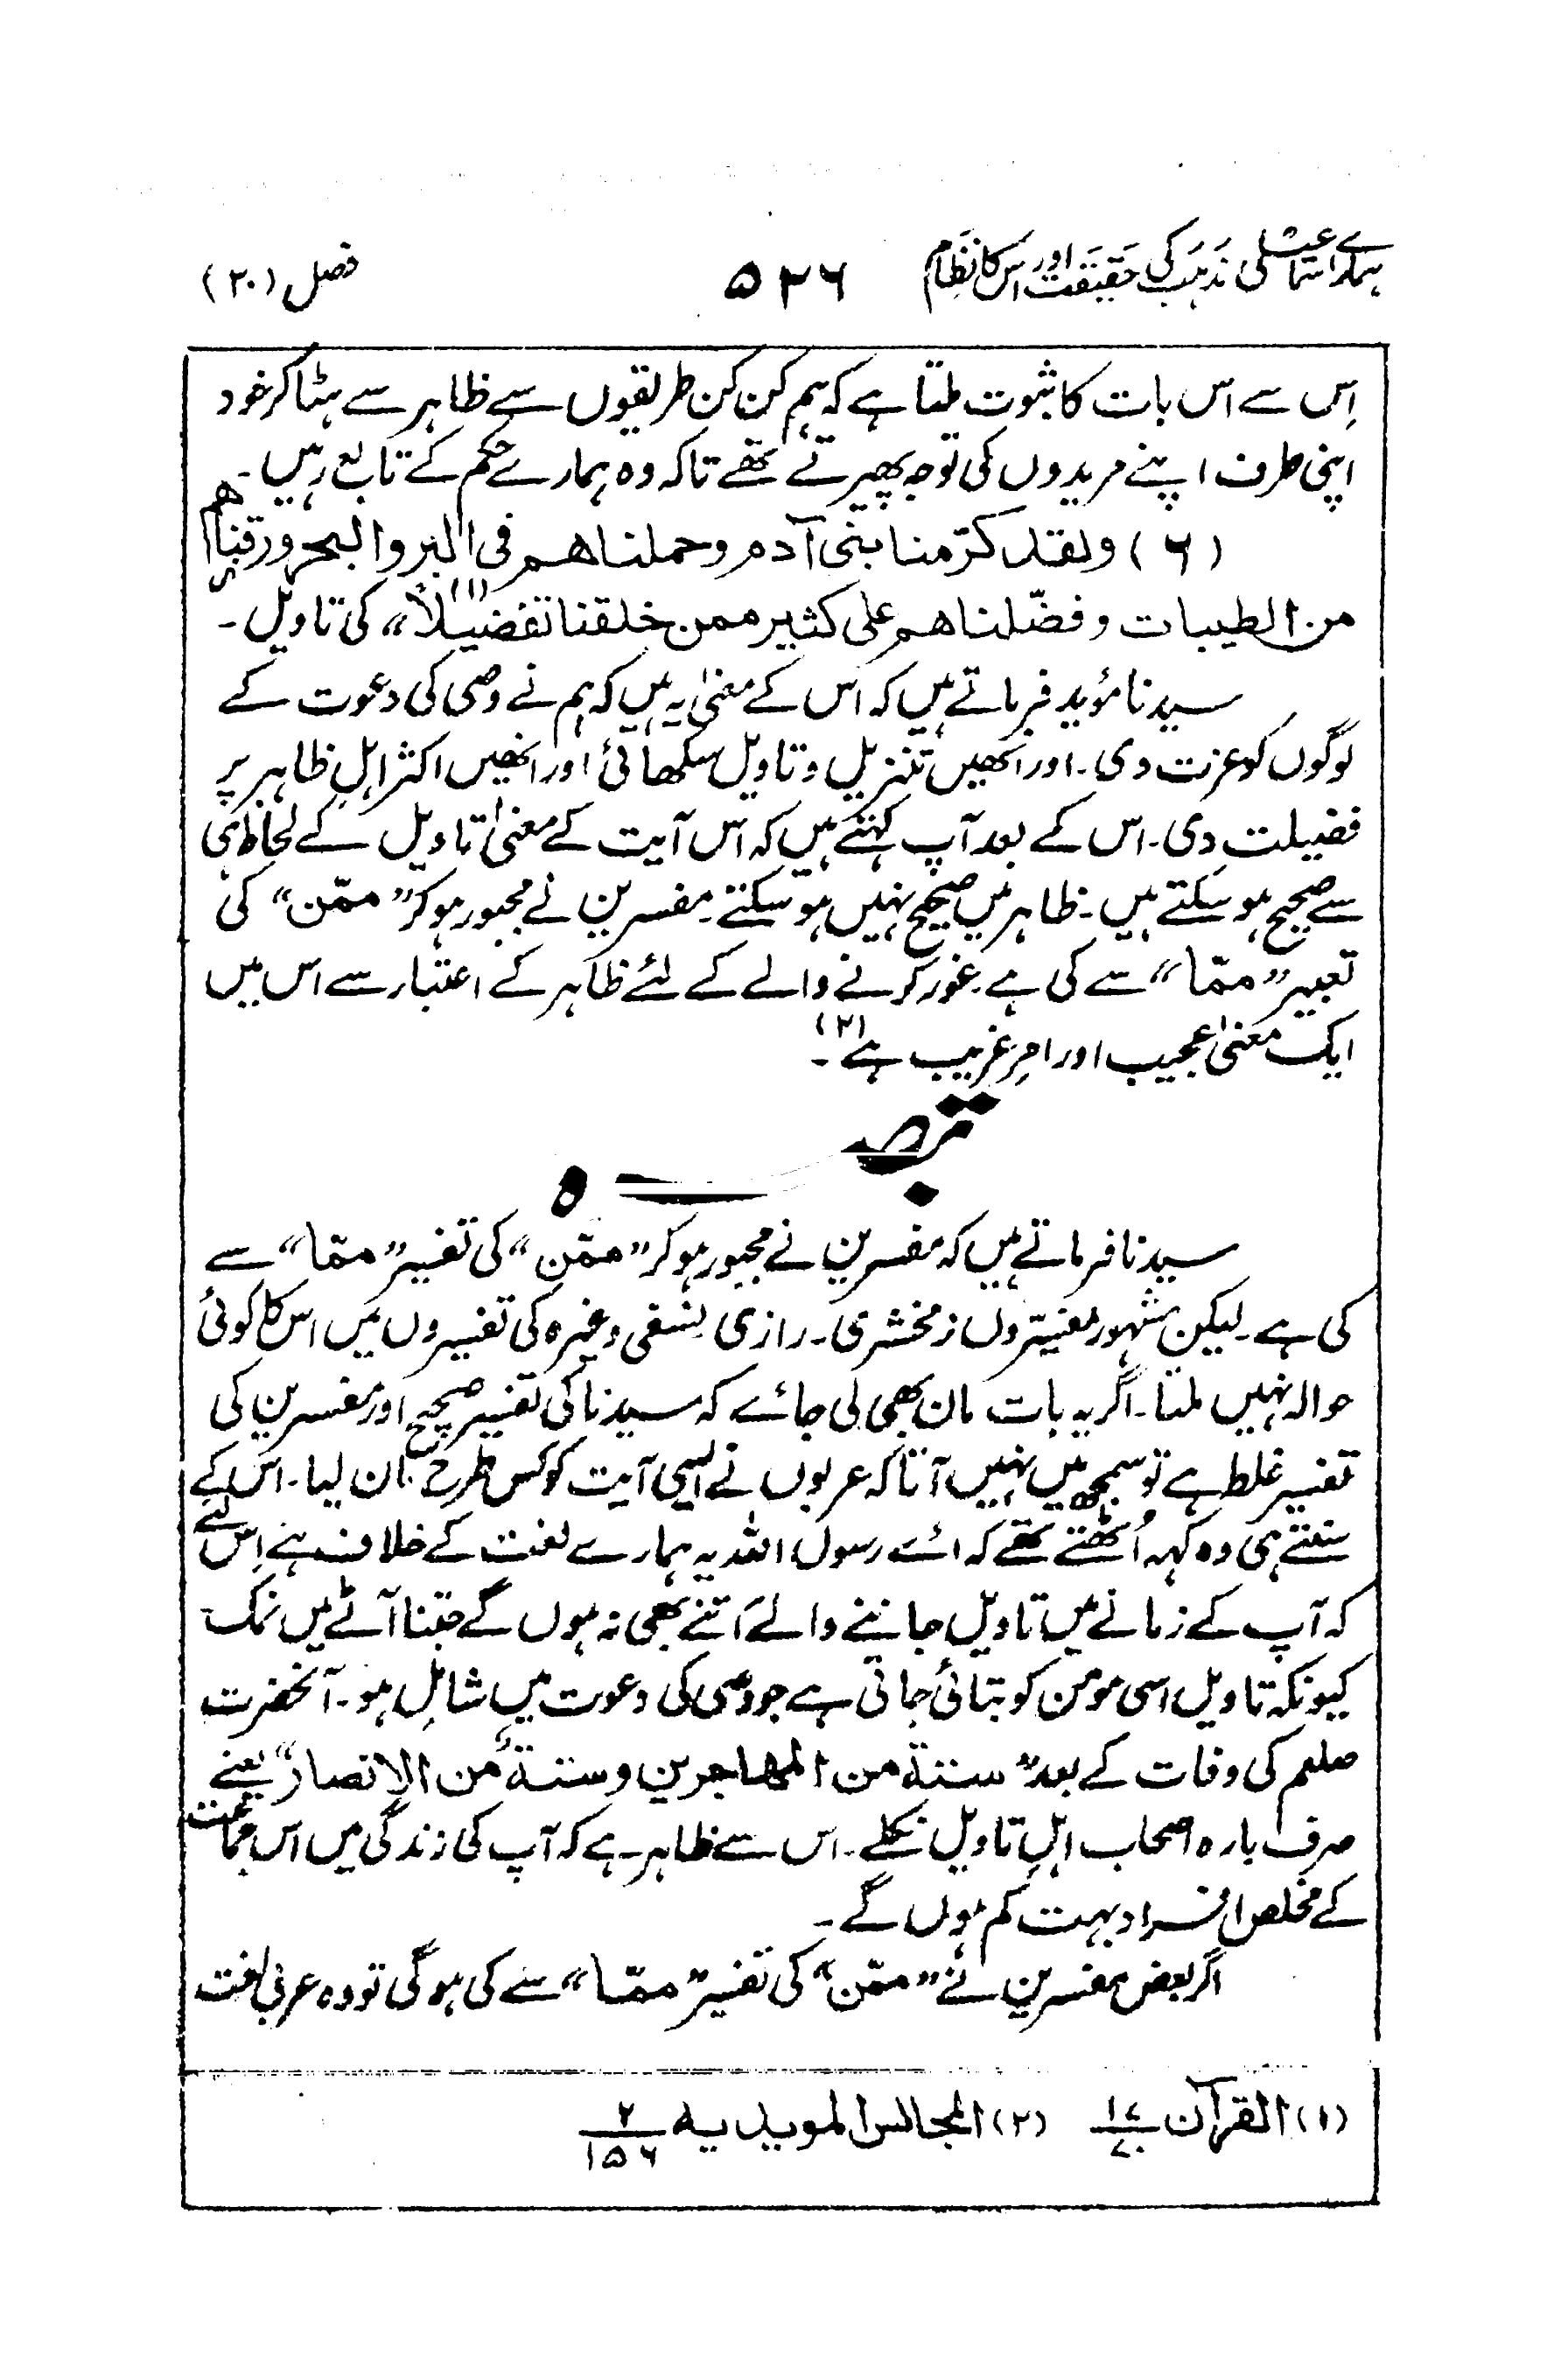 ہمارے اسماعیلی مذہب کی حقیقت اور اس کا نظام ۵۳۶ فصل (۳۰)
اِس سے اس بات کا ثبوت ملتا ہے کہ ہم کن کن طریقوں سے ظاہر سے ہٹا کر خود
اپنی طرف اپنے مریدوں کی توجہ پھیرتے تھے تاکہ وہ ہمارے حکم کے تابع رہیں۔
(۶) ولقد کرّمنا بنی آدم وحملناھم فی البر والبحر ورزقناھم
من الطیبات وفضّلناھم علی کثیر ممن خلقنا تفضیلاً“ (۱) کی تاویل۔
سیدنا مؤید فرماتے ہیں کہ اس کے معنیٰ یہ ہیں کہ ہم نے وصی کی دعوت کے
لوگوں کو عزت دی۔ اور انھیں تنزیل و تاویل سکھائی اور انھیں اکثر اہلِ ظاہر پر
فضیلت دی۔ اس کے بعد آپ کہتے ہیں کہ اس آیت کے معنیٰ تاویل کے لحاظ ہی
سے صحیح ہو سکتے ہیں۔ ظاہر میں صحیح نہیں ہو سکتے۔ مفسرین نے مجبور ہو کر ”ممّن“ کی
تعبیر ”ممّا“ سے کی ہے۔ غور کرنے والے کے لئے ظاہر کے اعتبار سے اس میں
ایک معنیٰ عجیب اور امرِ غریب ہے (۲)۔
تبصرہ
سیدنا فرماتے ہیں کہ مفسرین نے مجبور ہو کر ”ممّن“ کی تفسیر ”ممّا“ سے
کی ہے۔ لیکن مشہور مفسّروں زمخشری۔ رازی نسفی وغیرہ کی تفسیروں میں اس کا کوئی
حوالہ نہیں ملتا۔ اگر یہ بات مان بھی لی جائے کہ سیدنا کی تفسیر صحیح اور مفسرین کی
تفسیر غلط ہے تو سمجھ میں نہیں آتا کہ عربوں نے ایسی آیت کو کس طرح مان لیا۔ اس کے
سنتے ہی وہ کہہ اُٹھتے تھے کہ اے رسول اللہ یہ ہمارے لغت کے خلاف ہے اِس لئے
کہ آپ کے زمانے میں تاویل جاننے والے اَتنے بھی نہ ہوں گے جتنا آٹے میں نمک
کیونکہ تاویل اسی مومن کو بتائی جاتی ہے جو وصی کی دعوت میں شامل ہو۔ آنحضرت
صلعم کی وفات کے بعد ”ستة من المھاجرین وستة من الانصار“ یعنے
صرف بارہ اصحاب اہلِ تاویل نکلے۔ اس سے ظاہر ہے کہ آپ کی زندگی میں اس جماعت
کے مخلص افراد بہت کم ہوں گے۔
اگر بعض مفسرین نے ”ممّن“ کی تفسیر ”ممّا“ سے کی ہو گی تو وہ عربی لغت
(۱) القرآن ۱۷/۷۰ (۲) المجالس المویدیہ ۲/۱۵۶